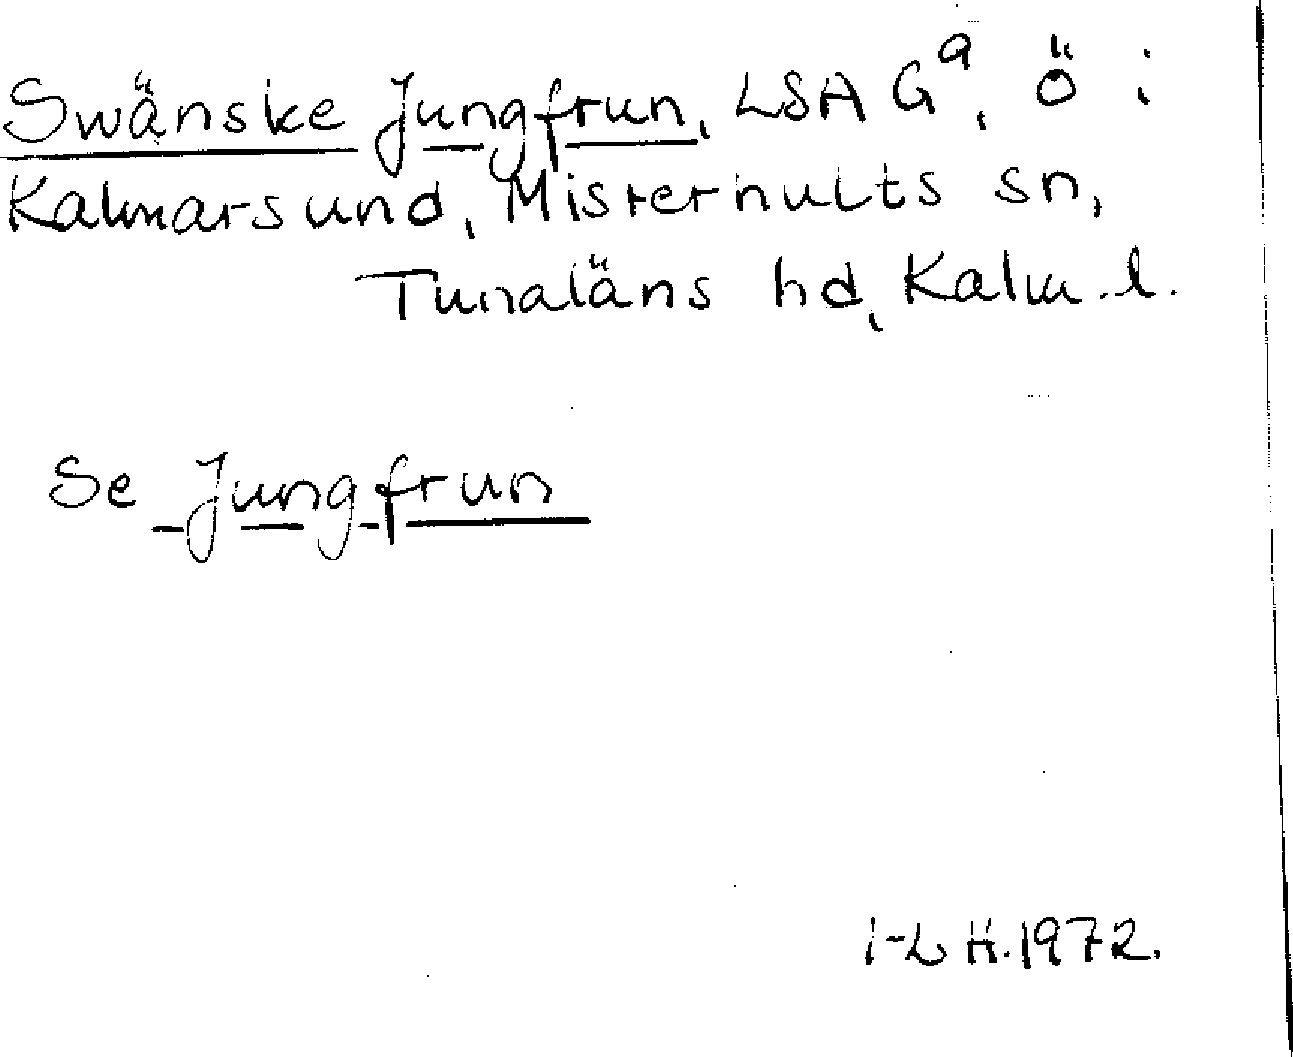 Swänske Jungfrun, LSA G⁹, ö i
Kalmarsund, Misterhults sn,
Tunaläns hd, Kalm. l.
Se Jungfrun
I-L H. 1972.